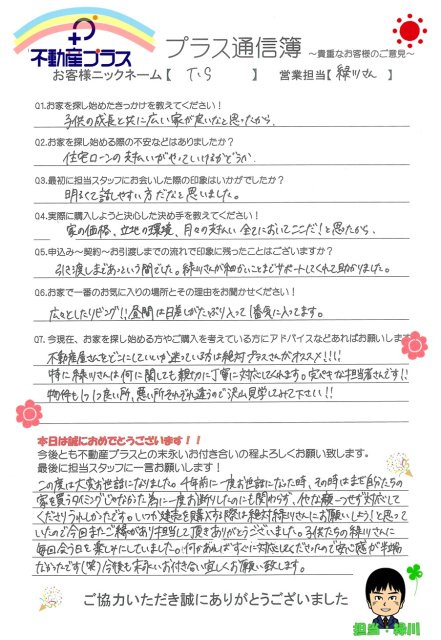 不動産プラス
プラス通信簿 ～貴重なお客様のご意見～
お客様ニックネーム【 T.S 】 営業担当【 緑川さん 】
Q1.お家を探し始めたきっかけを教えてください!
子供の成長と共に広い家が良いなと思ったから。
Q2.お家を探し始める際の不安などはありましたか?
住宅ローンの支払いがやっていけるかどうか。
Q3.最初に担当スタッフにお会いした際の印象はいかがでしたか?
明るくて話しやすい方だなと思いました。
Q4.実際に購入しようと決心した決め手を教えてください!
家の価格、立地の環境、月々の支払い 全てにおいてここだ!と思たから。
Q5.申込み～契約～お引渡しまでの流れで印象に残ったことはございますか?
引き渡しまであっという間でした。緑川さんが細かいことまでサポートしてくれて助かりました。
Q6.お家で一番のお気に入りの場所とその理由をお聞かせください!
広々としたリビング!!昼間は日差しがたっぷり入って1番気に入ってます。
Q7.今現在、お家を探し始める方やご購入を考えている方にアドバイスなどあればお願いします
不動産屋さんをどこにしていいか迷っている方は絶対プラスさんがオススメ!!!!
特に緑川さんは何に関しても親切に丁寧に対応してくれます。完ぺきな担当者さんです!!
物件も1つ1つ良い所、悪い所それぞれ違うので沢山見学してみて下さい!!
本日は誠におめでとうございます!!
今後とも不動産プラスとの末永いお付き合いの程よろしくお願い致します。
最後に担当スタッフに一言お願いします!
この度は大変お世話になりました。4年前に一度お世話になった時、その時はまだ自分たちの
家を買うタイミングじゃなかった為に一度お断りしたのにも関わらず、他な顔一つせず対応して
くださりうれしかったです。いつか建売を購入する際は絶対緑川さんにお願いしよう!と思って
いたので今回またご縁があり担当して頂きありがとうございました。子供たちも緑川さんに
毎回会う日を楽しみにしていました。何かあればすぐに対応してくださったので安心感が半端
なかったです(笑)今後も末永いお付き合い宜しくお願い致します。
ご協力いただき誠にありがとうございました
担当・緑川